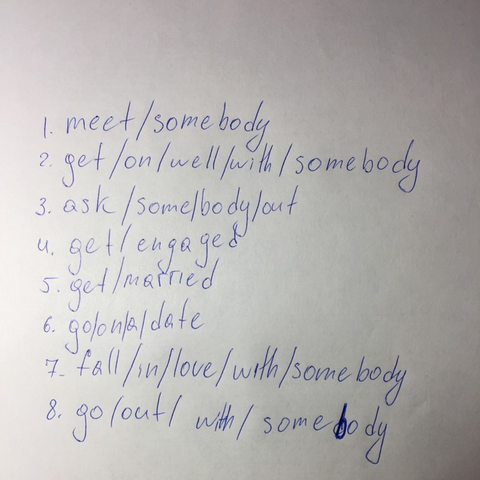 1. meet/somebody
2. get/on/well/with/somebody
3. ask/some/body/out
4. get/engaged
5. get/married
6. go/on/a/date
7. fall/in/love/with/somebody
8. go/out/ with/ somebody